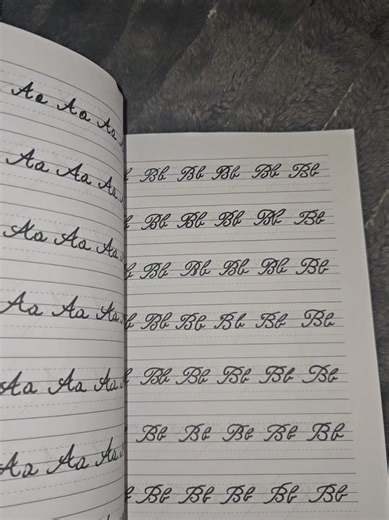 Aa Aa Aa
Aa Aa Aa
Aa Aa Aa
Aa Aa Aa
Aa Aa Aa
Aa Aa Aa
Bb Bb Bb Bb Bb
Bb Bb Bb Bb Bb
Bb Bb Bb Bb Bb
Bb Bb Bb Bb Bb
Bb Bb Bb Bb Bb
Bb Bb Bb Bb Bb
Bb Bb Bb Bb Bb